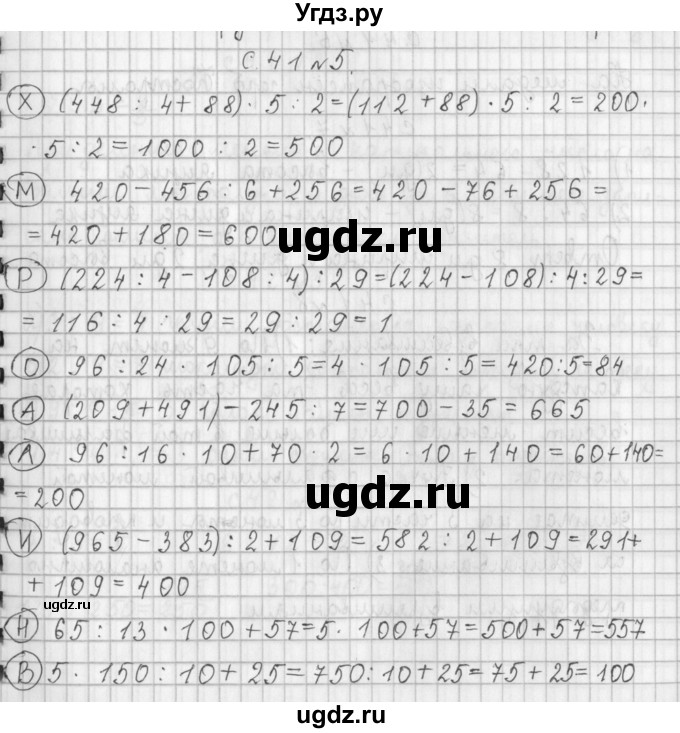 Угдз.ру
С. 41 № 5.
Х (448 : 4 + 88) · 5 : 2 = (112 + 88) · 5 : 2 = 200 ·
· 5 : 2 = 1000 : 2 = 500
М 420 - 456 : 6 + 256 = 420 - 76 + 256 =
= 420 + 180 = 600
ugdz.ru
Р (224 : 4 - 108 : 4) : 29 = (224 - 108) : 4 : 29 =
= 116 : 4 : 29 = 29 : 29 = 1
О 96 : 24 · 105 : 5 = 4 · 105 : 5 = 420 : 5 = 84
А (209 + 491) - 245 : 7 = 700 - 35 = 665
Л 96 : 16 · 10 + 70 · 2 = 6 · 10 + 140 = 60 + 140 =
= 200
ugdz.ru
И (965 - 383) : 2 + 109 = 582 : 2 + 109 = 291 +
+ 109 = 400
ugdz.ru
Н 65 : 13 · 100 + 57 = 5 · 100 + 57 = 500 + 57 = 557
В 5 · 150 : 10 + 25 = 750 : 10 + 25 = 75 + 25 = 100
ugdz.ru
ugdz.ru